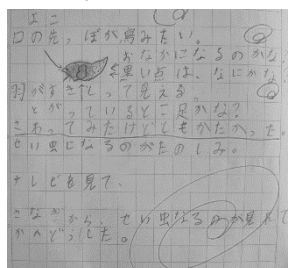 口の先っぽが鳥みたい。
おなかになるのかな
黒い点は、なにかな
羽がすきとって見える
とがっているとこ足かな?
さわってみたけどとてもかたかった。
せい虫になるのがたのしみ。
テレビを見て、
さなぎから、せい虫なるのが見れて
かんどうした。